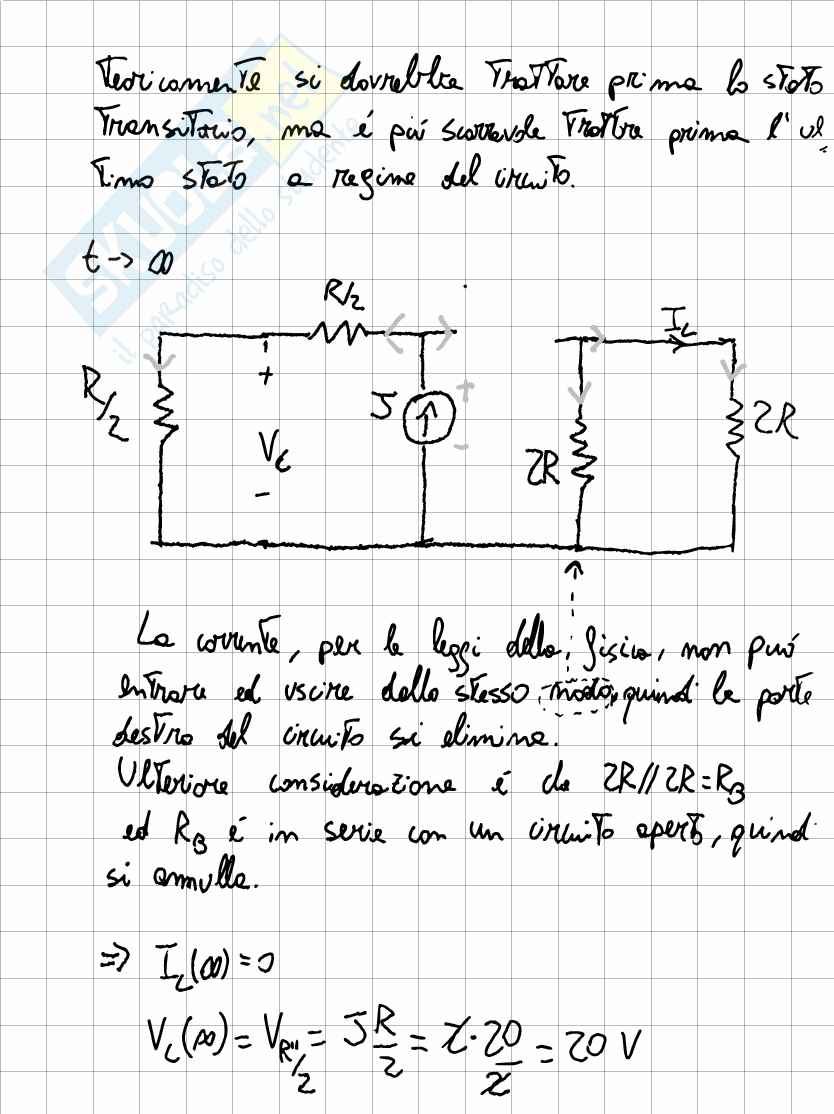 Teoricamente si dovrebbe trattare prima lo stato
transitorio, ma é piú scorrevole trattre prima l' ul
timo stato a regime del circuito.
SKUOLA.net
il paradiso dello studente
t → ∞
R/2
I_L
R/2
+
V_c
-
J
+
-
2R
2R
La corrente, per le leggi della fisica, non puó
entrare ed uscire dallo stesso nodo, quindi la parte
destra del circuito si elimina.
Ulteriore considerazione é che 2R//2R=R_B
ed R_B é in serie con un circuito aperto, quindi
si annulla.
⇒ I_L(∞)=0
V_c(∞) = V_R''/2 = J R/2 = 2·20/2 = 20 V